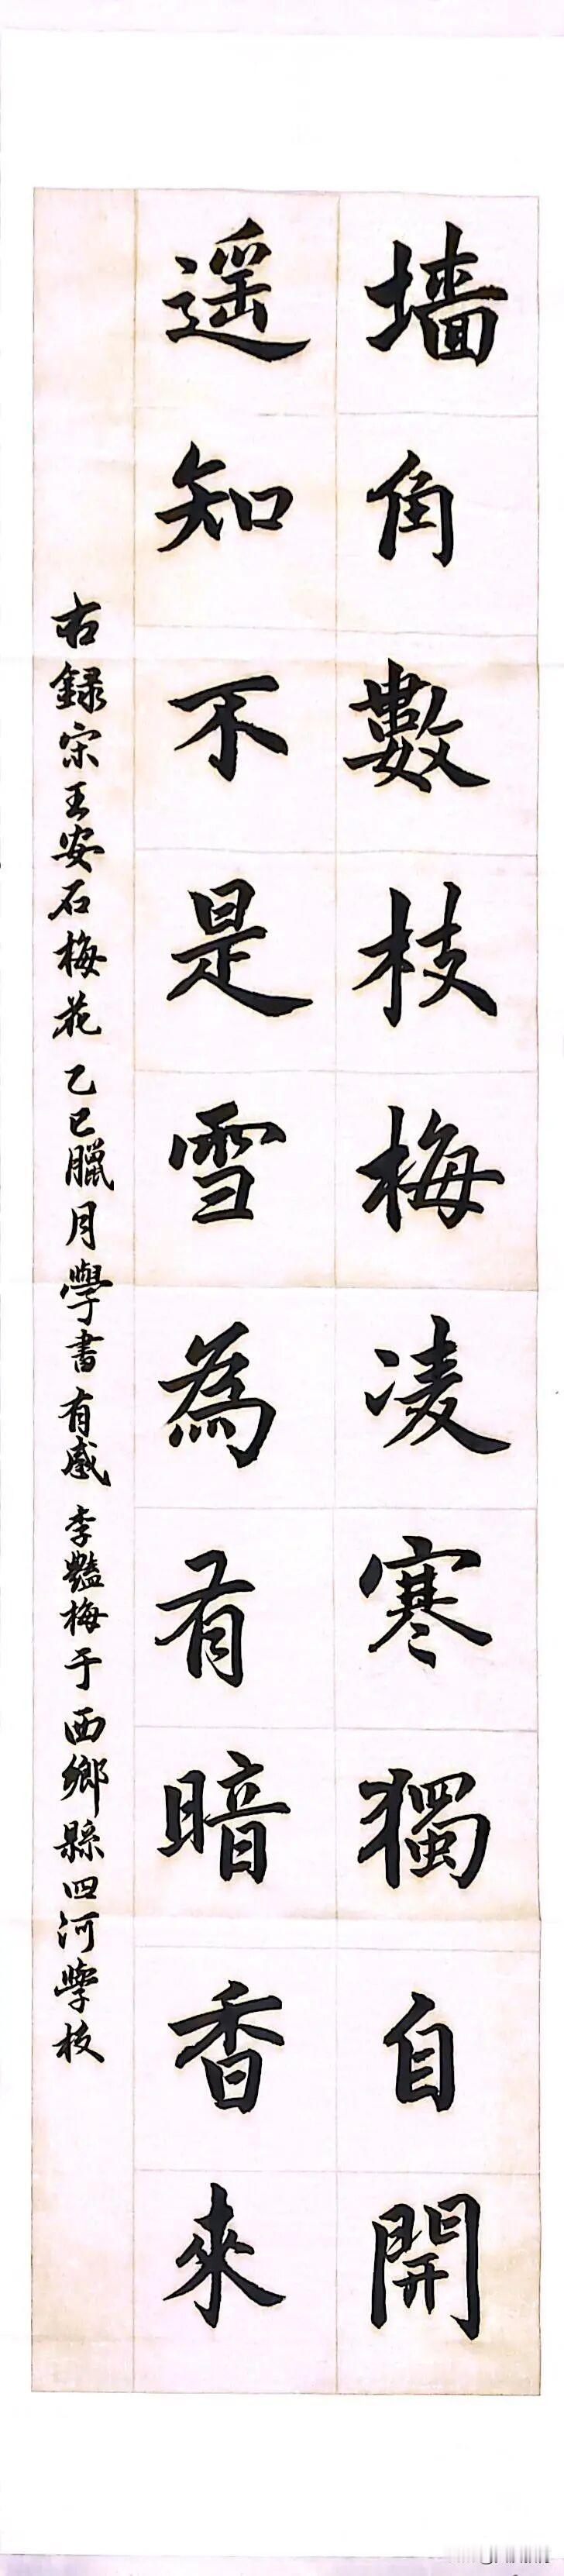 墙角數枝梅凌寒獨自開
遥知不是雪為有暗香來
右録宋王安石梅花乙巳臘月學書有感李豔梅于西鄉縣四河學校